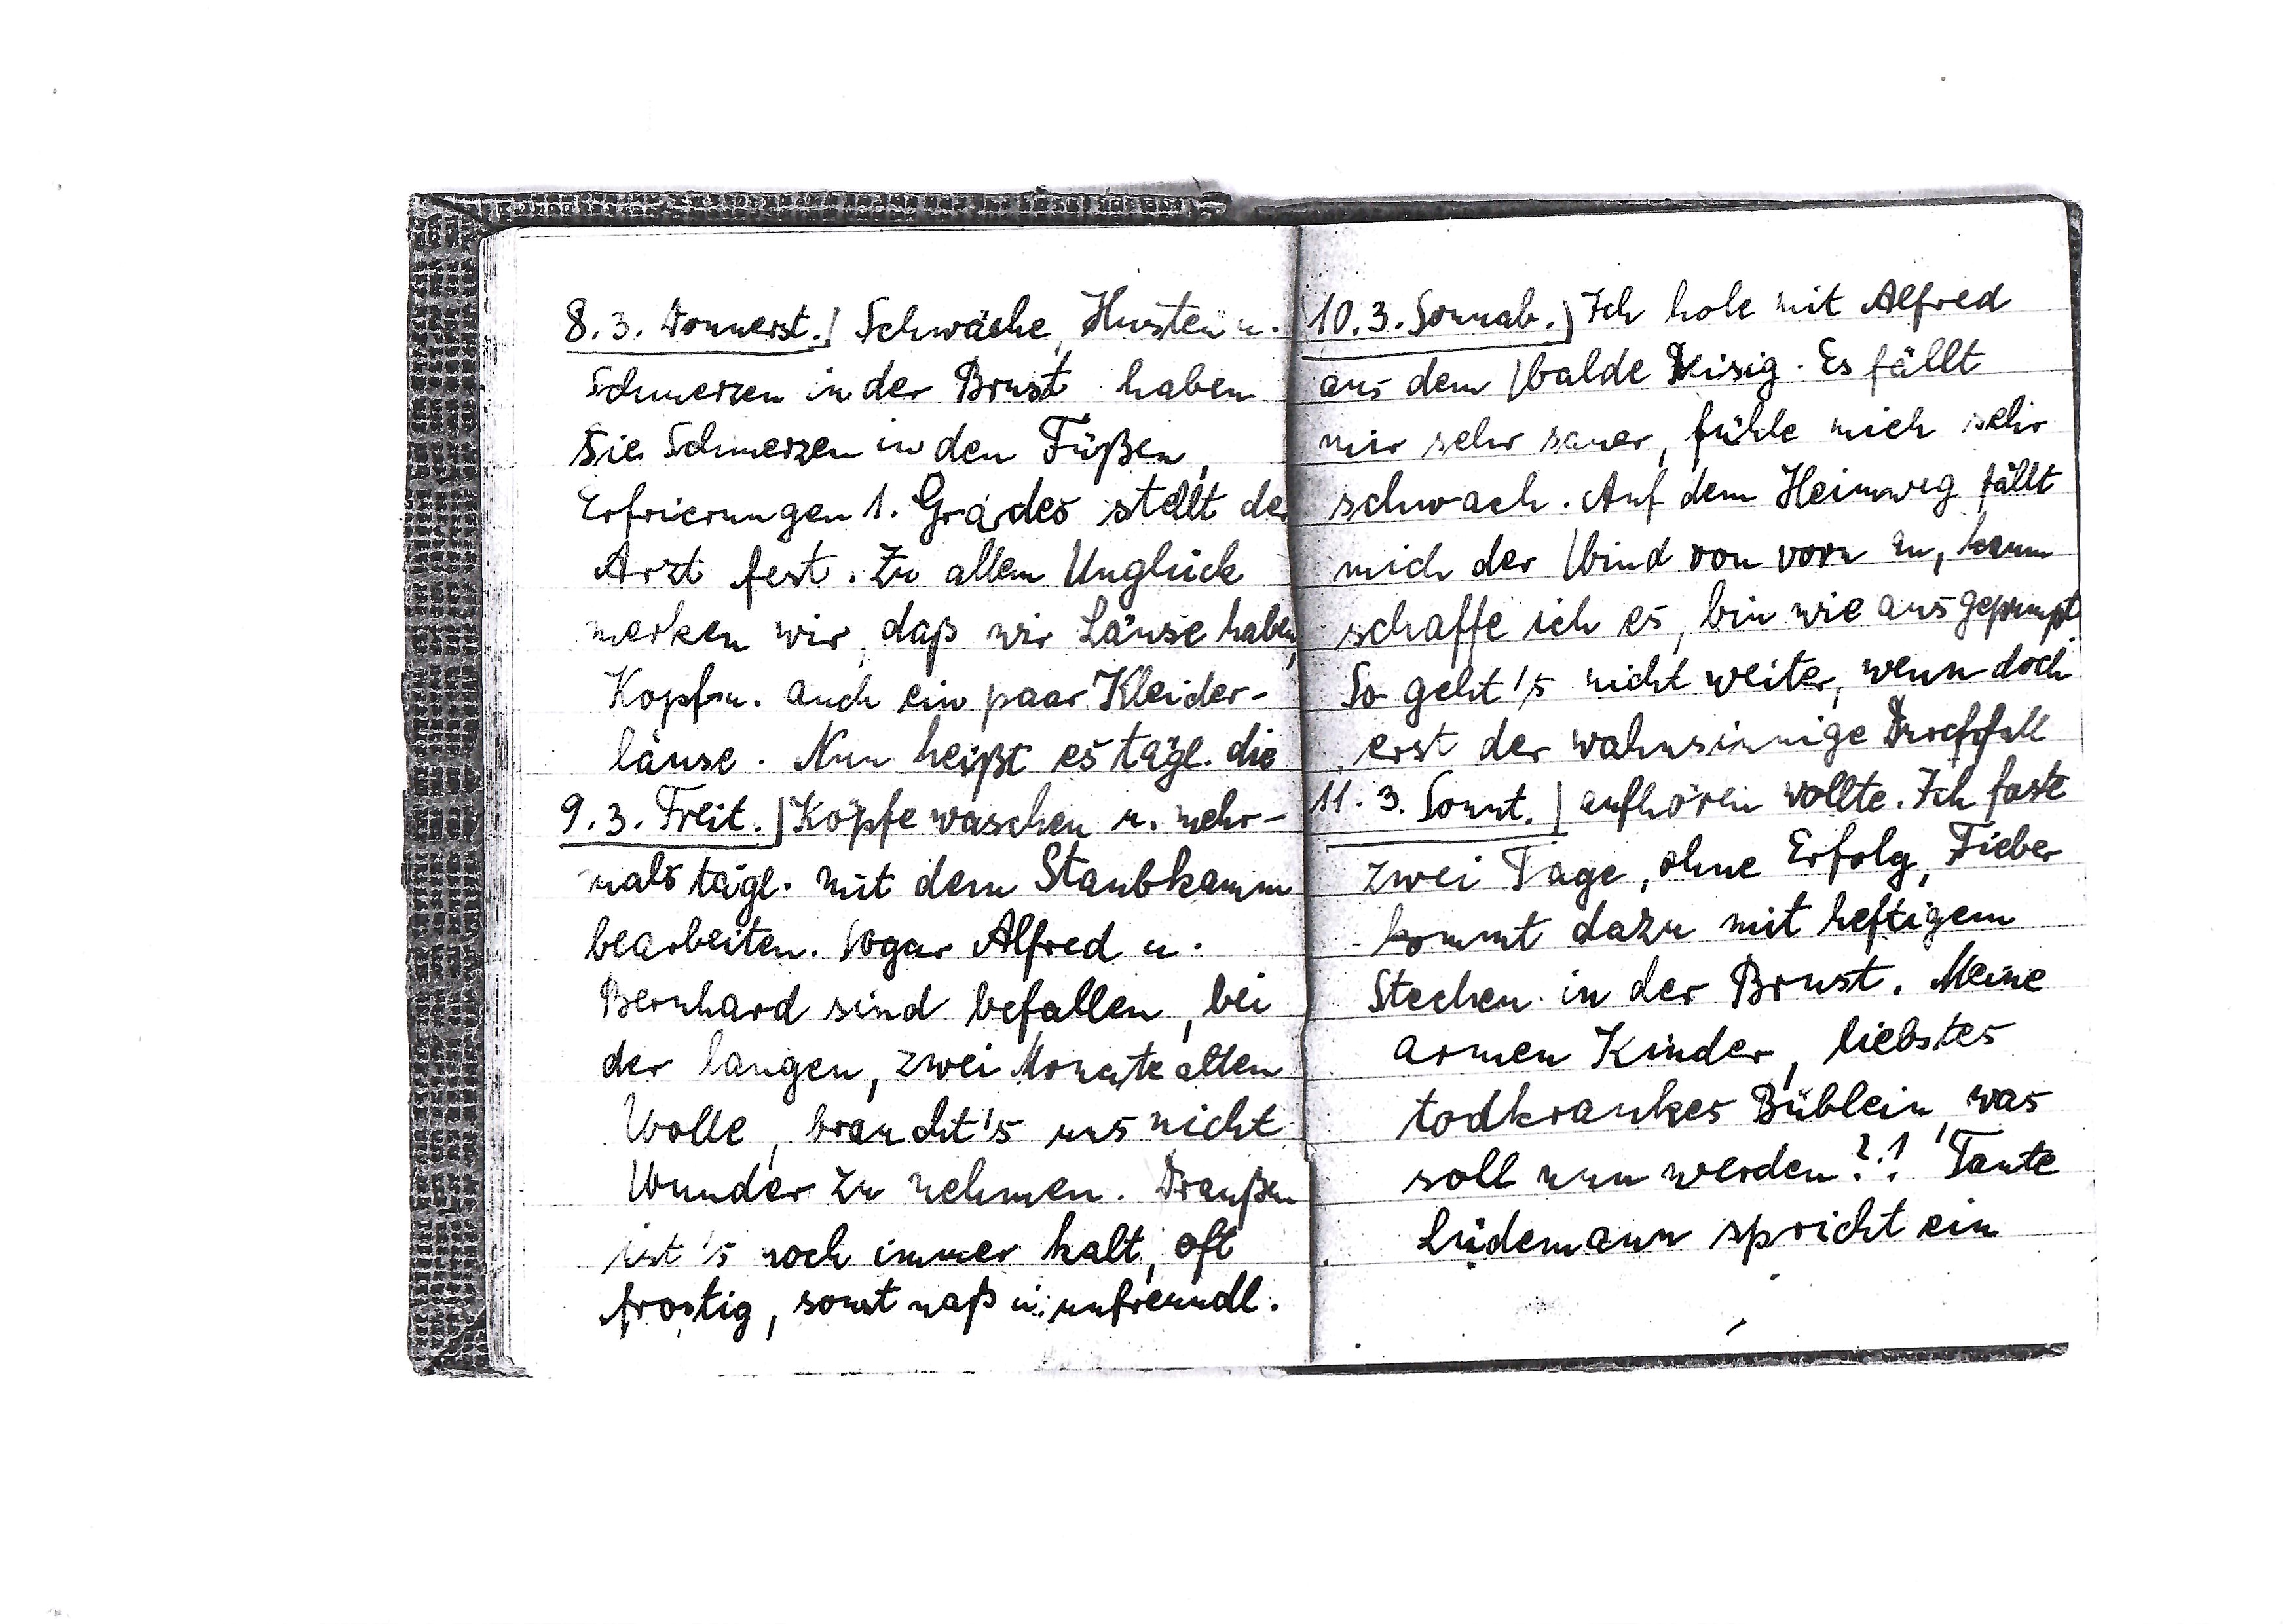 8. 3. Donnerst. | Schwäche, Husten u.
Schmerzen in der Brust haben
Sie Schmerzen in den Füßen,
Erfrierungen 1. Grades stellt der
Arzt fest. Zu allem Unglück
merken wir, daß wir Läuse haben,
Kopf u. auch ein paar Kleider-
läuse. Nun heißt es tägl. die
9. 3. Freit. | Köpfe waschen u. mehr-
mals tägl. mit dem Staubkamm
bearbeiten. Sogar Alfred u.
Bernhard sind befallen, bei
der langen, zwei Monate alten
Wolle, braucht's uns nicht
Wunder zu nehmen. Draußen
ist's noch immer kalt, oft
frostig, sonst naß u. unfreundl.
10. 3. Sonnab. | Ich hole mit Alfred
aus dem Walde Reisig. Es fällt
mir sehr sauer, fühle mich sehr
schwach. Auf dem Heimweg fällt
mich der Wind von vorn an, kaum
schaffe ich es, bin wie ausgepumpt
So geht's nicht weiter, wenn doch
erst der wahnsinnige Durchfall
11. 3. Sonnt. | aufhören wollte. Ich faste
zwei Tage, ohne Erfolg, Fieber
kommt dazu mit heftigem
Stechen in der Brust. Meine
armen Kinder, liebstes
todkrankes Büblein, was
soll nun werden?! Tante
Lüdemann spricht ein